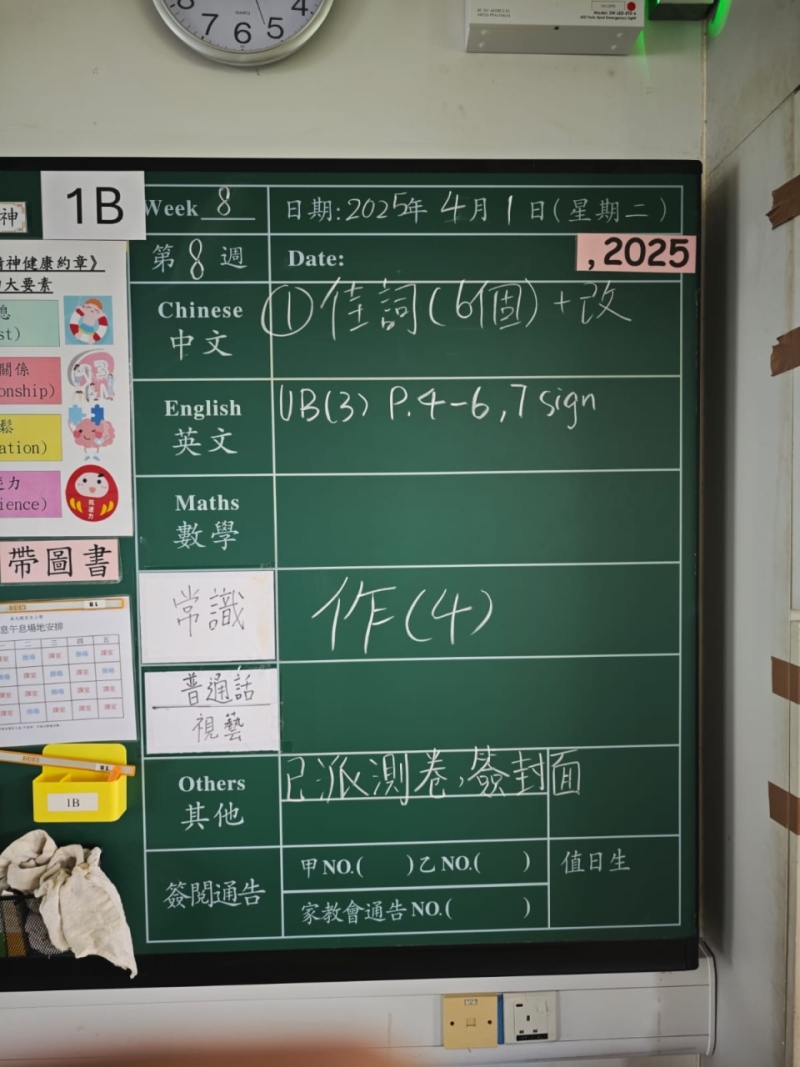 8 7 6 5 4
神
1B
Week 8
日期:2025年4月1日(星期二)
第8週
Date:
,2025
精神健康約章》
大要素
Chinese
中文
①佳詞(6個)+改
English
英文
UB(3) P.4-6,7 sign
關係
鬆
Maths
數學
帶圖書
常識
作(4)
息午息場地安排
二 三 四 五
普通話
視藝
Others
其他
已派測卷,簽封面
1B
簽閱通告
甲NO.( )乙NO.( )
值日生
家教會通告NO.( )